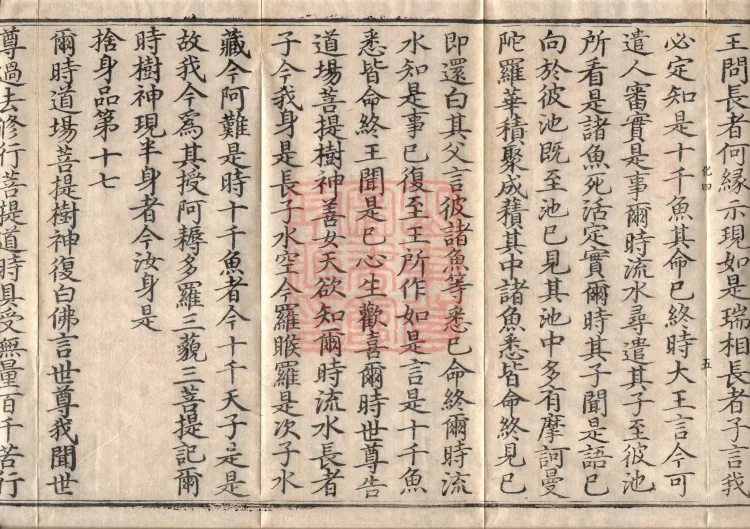 王問長者何縁示現如是瑞相長者子言我
必定知是十千魚其命已終時大王言今可
遣人審實是事爾時流水尋遣其子至彼池
所看是諸魚死活定實爾時其子聞是語已
向於彼池既至池已見其池中多有摩訶曼
陀羅華積聚成積其中諸魚悉皆命終見已
即還白其父言彼諸魚等悉已命終爾時流
水知是事已復至王所作如是言是十千魚
悉皆命終王聞是已心生歡喜爾時世尊告
道場菩提樹神善女天欲知爾時流水長者
子今我身是長子水空今羅睺羅是次子水
藏今阿難是時十千魚者今十千天子是是
故我今爲其授阿耨多羅三藐三菩提記爾
時樹神現半身者今汝身是
捨身品第十七
爾時道場菩提樹神復白佛言世尊我聞世
尊過去修行菩提道時具受無量百千苦行
化四
五